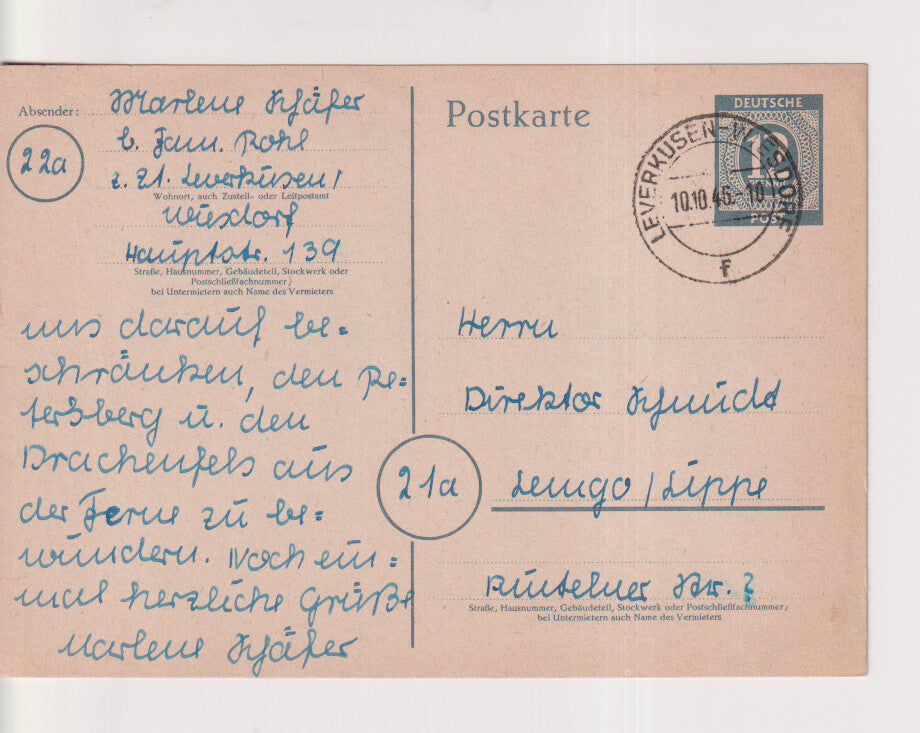 Absender: Marlene Schäfer
b. Fam. Pohl
22a
z. Zt. Leverkusen/
Wohnort, auch Zustell- oder Leitpostamt
Wiesdorf
Hauptstr. 139
Straße, Hausnummer, Gebäudeteil, Stockwerk oder
Postschließfachnummer;
bei Untermietern auch Name des Vermieters
uns darauf be=
schränken, den Pe=
tersberg u. den
Drachenfels aus
der Ferne zu be=
wundern. Noch ein=
mal herzliche Grüße
Marlene Schäfer
Postkarte
DEUTSCHE
12
POST
LEVERKUSEN-WIESDORF
10.10.46.-10
f
Herrn
Direktor Schmidt
21a
Lemgo/Lippe
Rintelner Str. ?
Straße, Hausnummer, Gebäudeteil, Stockwerk oder Postschließfachnummer;
bei Untermietern auch Name des Vermieters